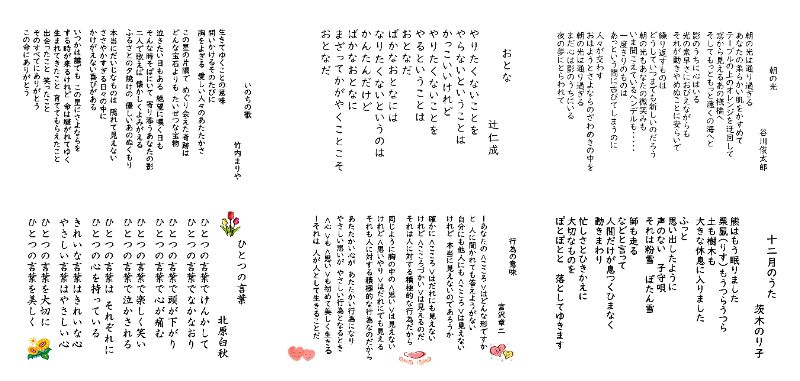 朝の光
谷川俊太郎
朝の光は通り過ぎる
あなたの柔らかい肌をかすめて
テーブルの上のオレンジを迂回して
窓から見えるあの桟橋へ
そしてもっともっと遠くの海へと
影のうちに心はいる
光の素早さにおびえながらも
それが動きやめぬことに安らいで
繰り返すものは
どうしていつまでも新しいのだろう
朝の光もあなたの微笑みも
いま聞こえているヘンデルも・・・・
一度きりのものは
あっという間に古びてしまうのに
人々が交す
おはようとさよならのざわめきの中を
朝の光は通り過ぎる
まだ心は影のうちにいる
夜の夢にとらわれて
おとな
辻仁成
やりたくないことを
やらないということは
かっこいいけれど
やりたくないことを
やるということは
おとなだ
ばかなおとなには
なりたくないというのは
かんたんだけど
ばかなおとなに
まざってかがやくことこそ
おとなだ
いのちの歌
竹内まりや
生きてゆくことの意味
問いかけるそのたびに
胸をよぎる 愛しい人々のあたたかさ
この星の片隅で めぐり会えた奇跡は
どんな宝石よりも たいせつな宝物
泣きたい日もある 絶望に嘆く日も
そんな時そばにいて 寄り添うあなたの影
二人で歌えば 懐かしくよみがえる
ふるさとの夕焼けの 優しいあのぬくもり
本当にだいじなものは 隠れて見えない
ささやかすぎる日々の中に
かけがえない喜びがある
いつかは誰でも この星にさよならを
する時が来るけれど 命は継がれてゆく
生まれてきたこと 育ててもらえたこと
出会ったこと 笑ったこと
そのすべてにありがとう
この命にありがとう
十二月のうた
茨木のり子
熊はもう眠りました
栗鼠(りす)もうつらうつら
土も樹木も
大きな休息に入りました
ふっと
思い出したように
声のない 子守唄
それは粉雪 ぼたん雪
師も走る
などと言って
人間だけが息つくひまなく
動きまわり
忙しさとひきかえに
大切なものを
ぽとぽとと 落としてゆきます
行為の意味
宮沢章二
―あなたの<こころ>はどんな形ですか
と 人に聞かれても答えようがない
自分にも他人にも<こころ>は見えない
けれど 本当に見えないのであろうか
確かに<こころ>はだれにも見えない
けれど<こころづかい>は見えるのだ
それは人に対する積極的な行為だから
同じように胸の中の<思い>は見えない
けれど<思いやり>はだれにでも見える
それも人に対する積極的な行為なのだから
あたたかい心が あたたかい行為になり
やさしい思いが やさしい行為になるとき
<心>も<思い>も初めて美しく生きる
―それは 人が人として生きることだ
ひとつの言葉
北原白秋
ひとつの言葉でけんかして
ひとつの言葉でなかなおり
ひとつの言葉で頭が下がり
ひとつの言葉で心が痛む
ひとつの言葉で楽しく笑い
ひとつの言葉で泣かされる
ひとつの言葉は それぞれに
ひとつの心を持っている
きれいな言葉はきれいな心
やさしい言葉はやさしい心
ひとつの言葉を大切に
ひとつの言葉を美しく